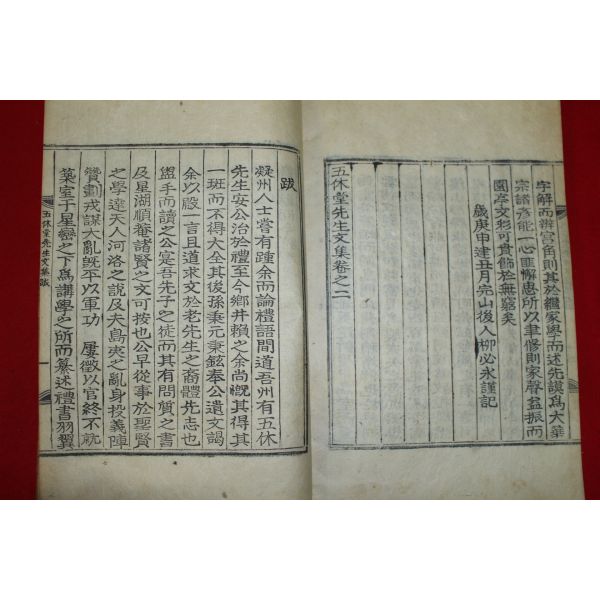 字解而辨宮角則其於繼家學而述先謨爲大華
宗諸彦能一心匪懈思所以聿修則家聲益振而
園亭文彩可貫飾於無窮矣
歲庚申建丑月完山後人柳必永謹記
五休堂先生文集卷之二
跋
凝州人士嘗有踵余而論禮語間道吾州有五休
先生安公治於禮至今鄉井賴之余尚慨其得其
一斑而不得大全其後孫秉元秉鉉奉公遺文謁
余以殿一言且道求文於老先生之裔體先志也
盥手而讀之公寔吾先子之徒而其有問質之書
及星湖順菴諸賢之文可按也公早從事於聖賢
之學達天人河洛之說及夫島夷之亂身投義陣
贊劃戎謀大亂旣平以軍功 屢徵以官終不就
築室于星巒之下爲講學之所而纂述禮書羽翼
五休堂先生文集跋